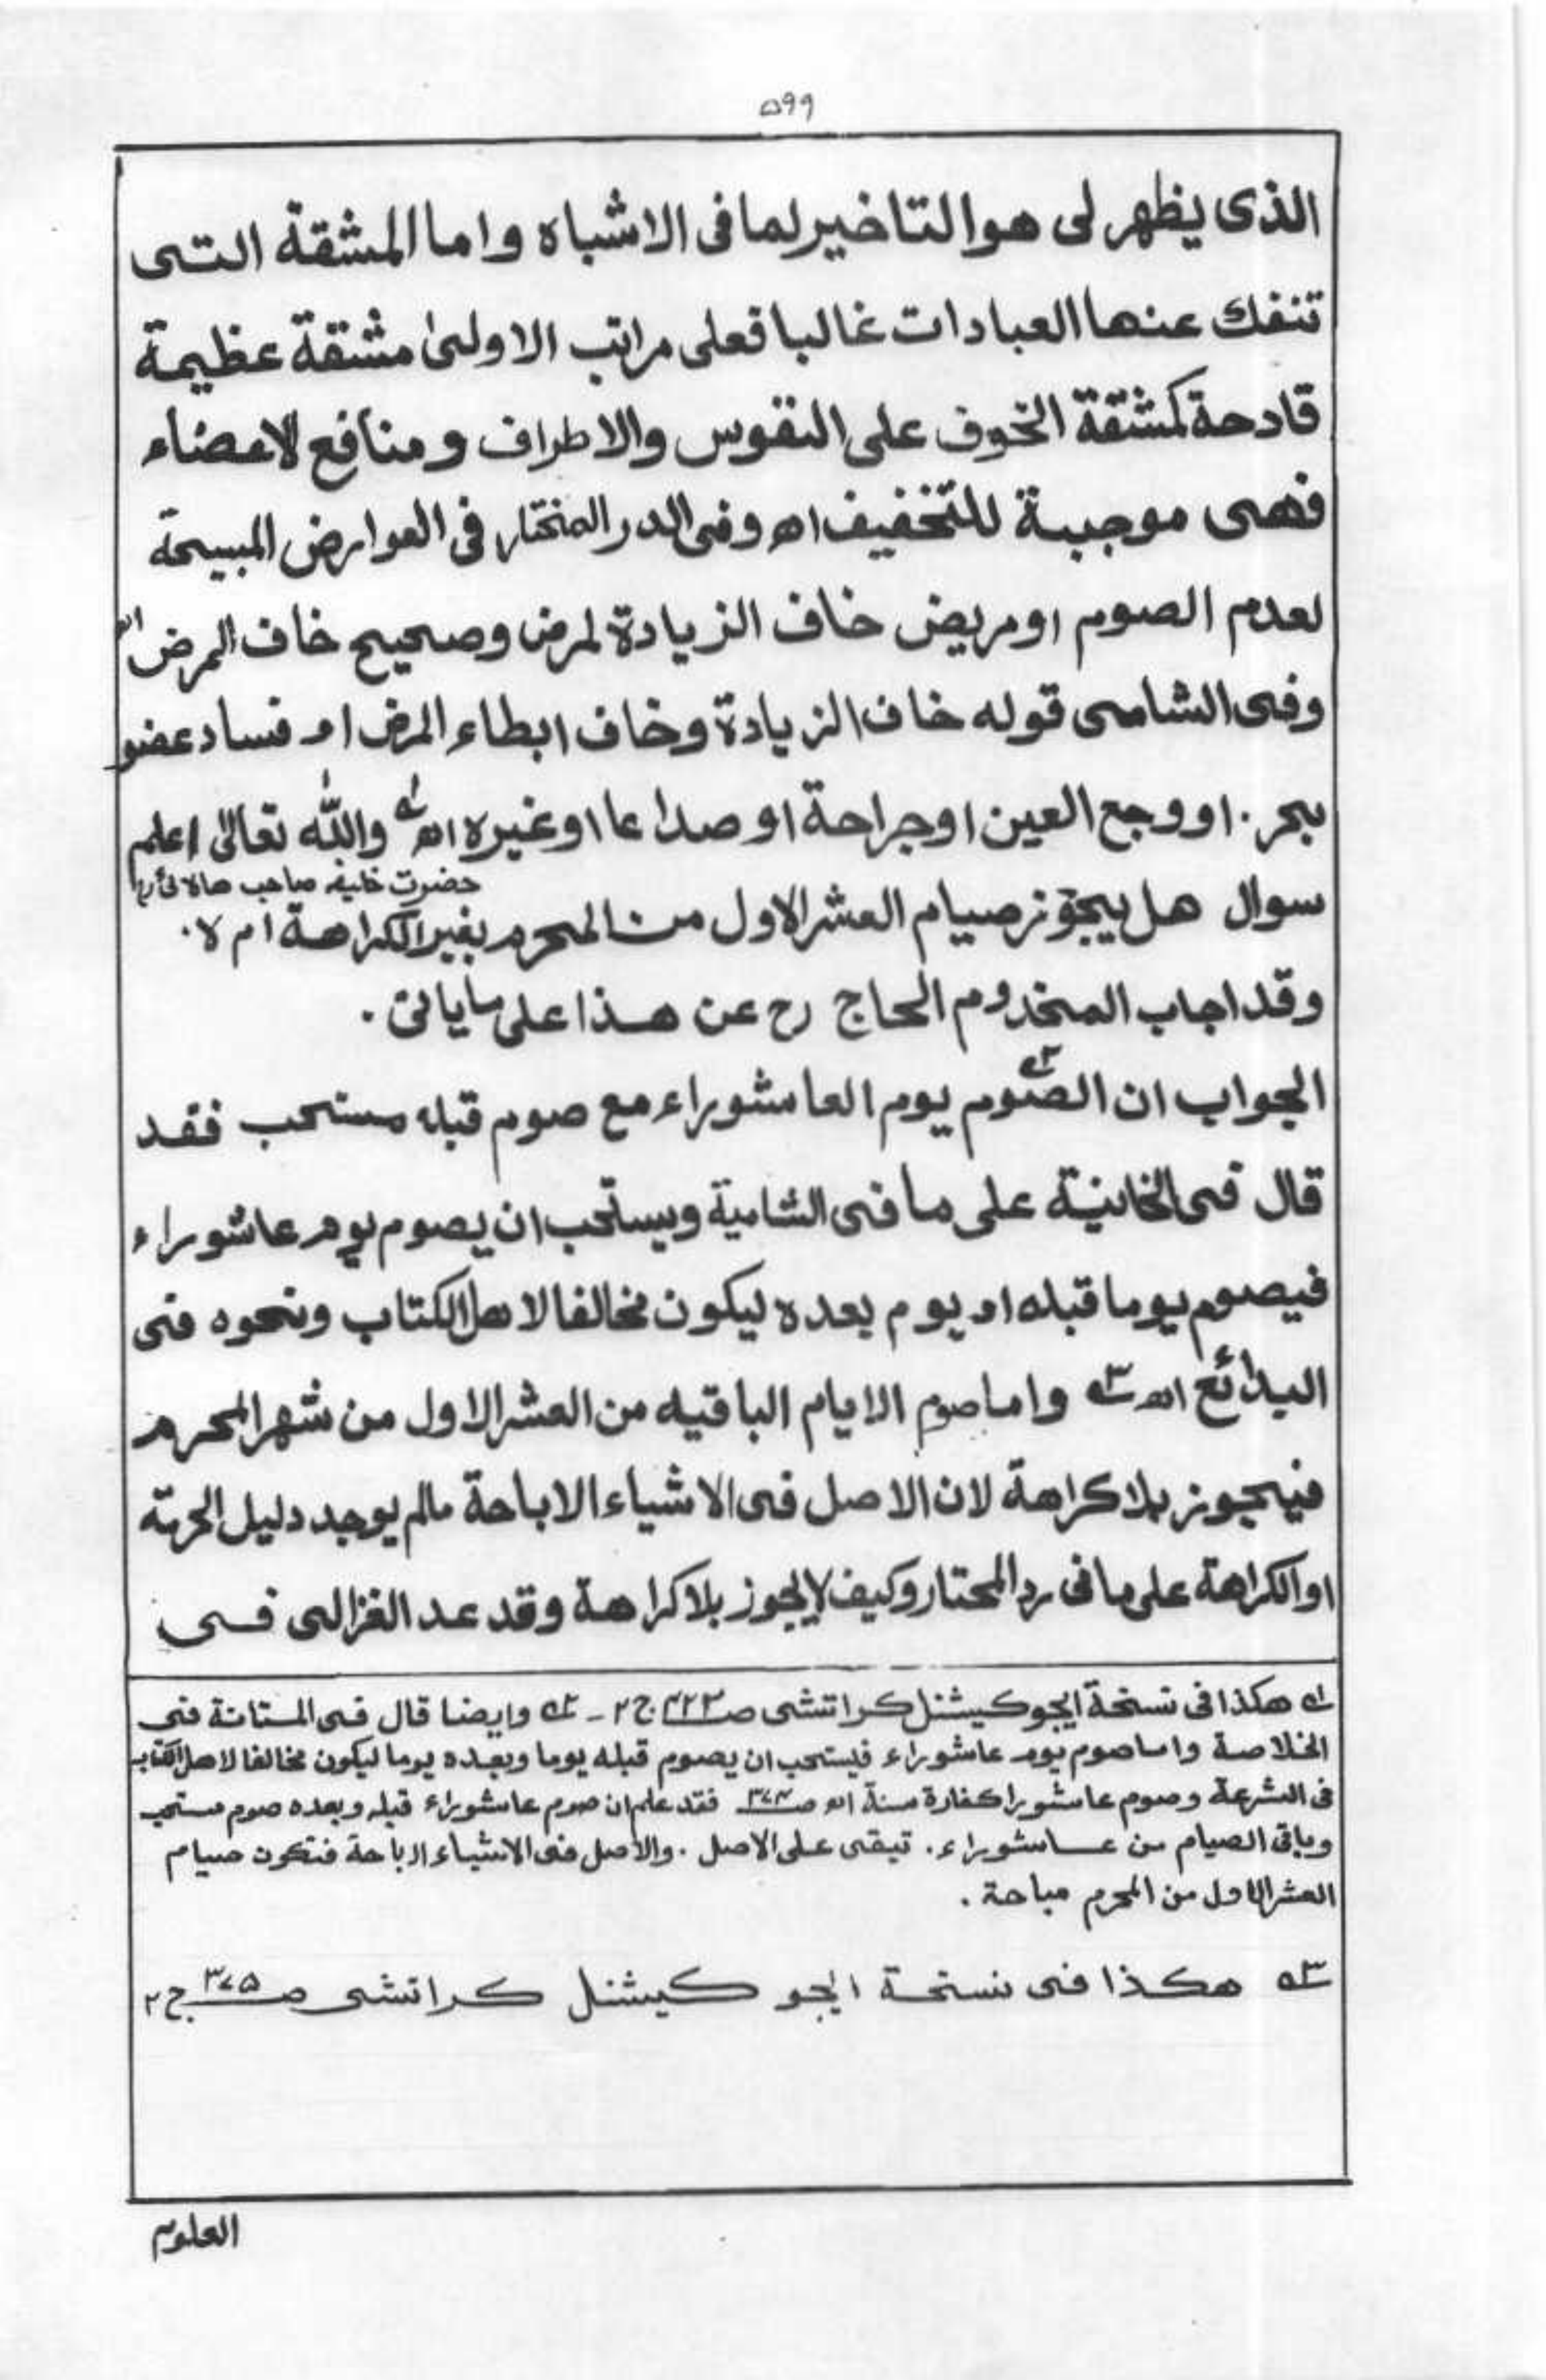 ۵۹۹
الذى يظهر لى هو التاخير لما فى الاشباه و اما المشقة التى
تنفك عنها العبادات غالبا فعلى مراتب الاولىٰ مشقة عظيمة
قادحة كمشقة الخوف على النفوس والاطراف و منافع الاعضاء
فهى موجبة للتخفيف اھ وفى الدر المختار فى العوارض المبيحة
لعدم الصوم او مريض خاف الزيادة لمرض وصحيح خاف المرض اھ
وفى الشامى قوله خاف الزيادة وخاف ابطاء المرض او فساد عضو
بحر. او وجع العين او جراحة او صداعا او غيره اھ ؎۱ والله تعالىٰ اعلم
حضرت خليفه صاحب هالائى رح
سوال هل يجوز صيام العشر الاول من المحرم بغير الكراهة ام لا.
وقد اجاب المخدوم الحاج رح عن هذا على ما ياتى.
الجواب ان الصوم ؎۲ يوم العاشوراء مع صوم قبله مستحب فقد
قال فى الخانية على ما فى الشامية ويستحب ان يصوم يوم عاشوراء
فيصوم يوما قبله او يوم بعده ليكون مخالفا لاهل الكتاب ونحوه فى
البدائع اھ ؎۳ واما صوم الايام الباقيه من العشر الاول من شهر المحرم
فيجوز بلا كراهة لان الاصل فى الاشياء الاباحة مالم يوجد دليل الحرمة
او الكراهة على ما فى رد المحتار وكيف لا يجوز بلا كراهة وقد عد الغزالى فى
؎۱ هكذا فى نسخة ايجوكيشنل كراتشى صـ ۴۲۲ ج ۲ - ؎۲ وايضا قال فى المتانة فى
الخلاصة واما صوم يوم عاشوراء فيستحب ان يصوم قبله يوما وبعده يوما ليكون مخالفا لاهل الكتاب
فى الشرعة وصوم عاشورا كفارة سنة اھ صـ ۳۷۴ فقد علم ان صوم عاشوراء قبله وبعده صوم مستحب
وباقى الصيام من عاشوراء. تبقى على الاصل. والاصل فى الاشياء الاباحة فتكون صيام
العشر الاول من المحرم مباحة.
؎۳ هكذا فى نسخة ايجو كيشنل كراتشى صـ ۳۷۵ ج ۲
العلوم